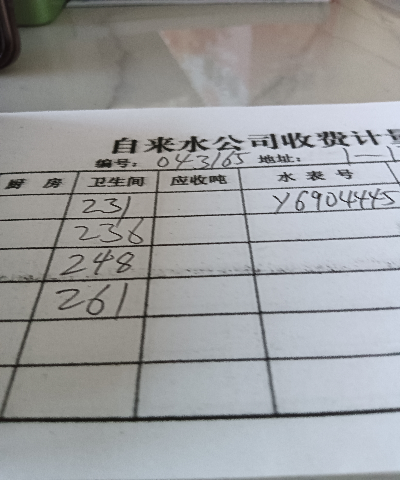 自来水公司收费计量
编号：043165 地址：1—1
厨房 卫生间 应收吨 水表号
231 Y6904445
236
248
261